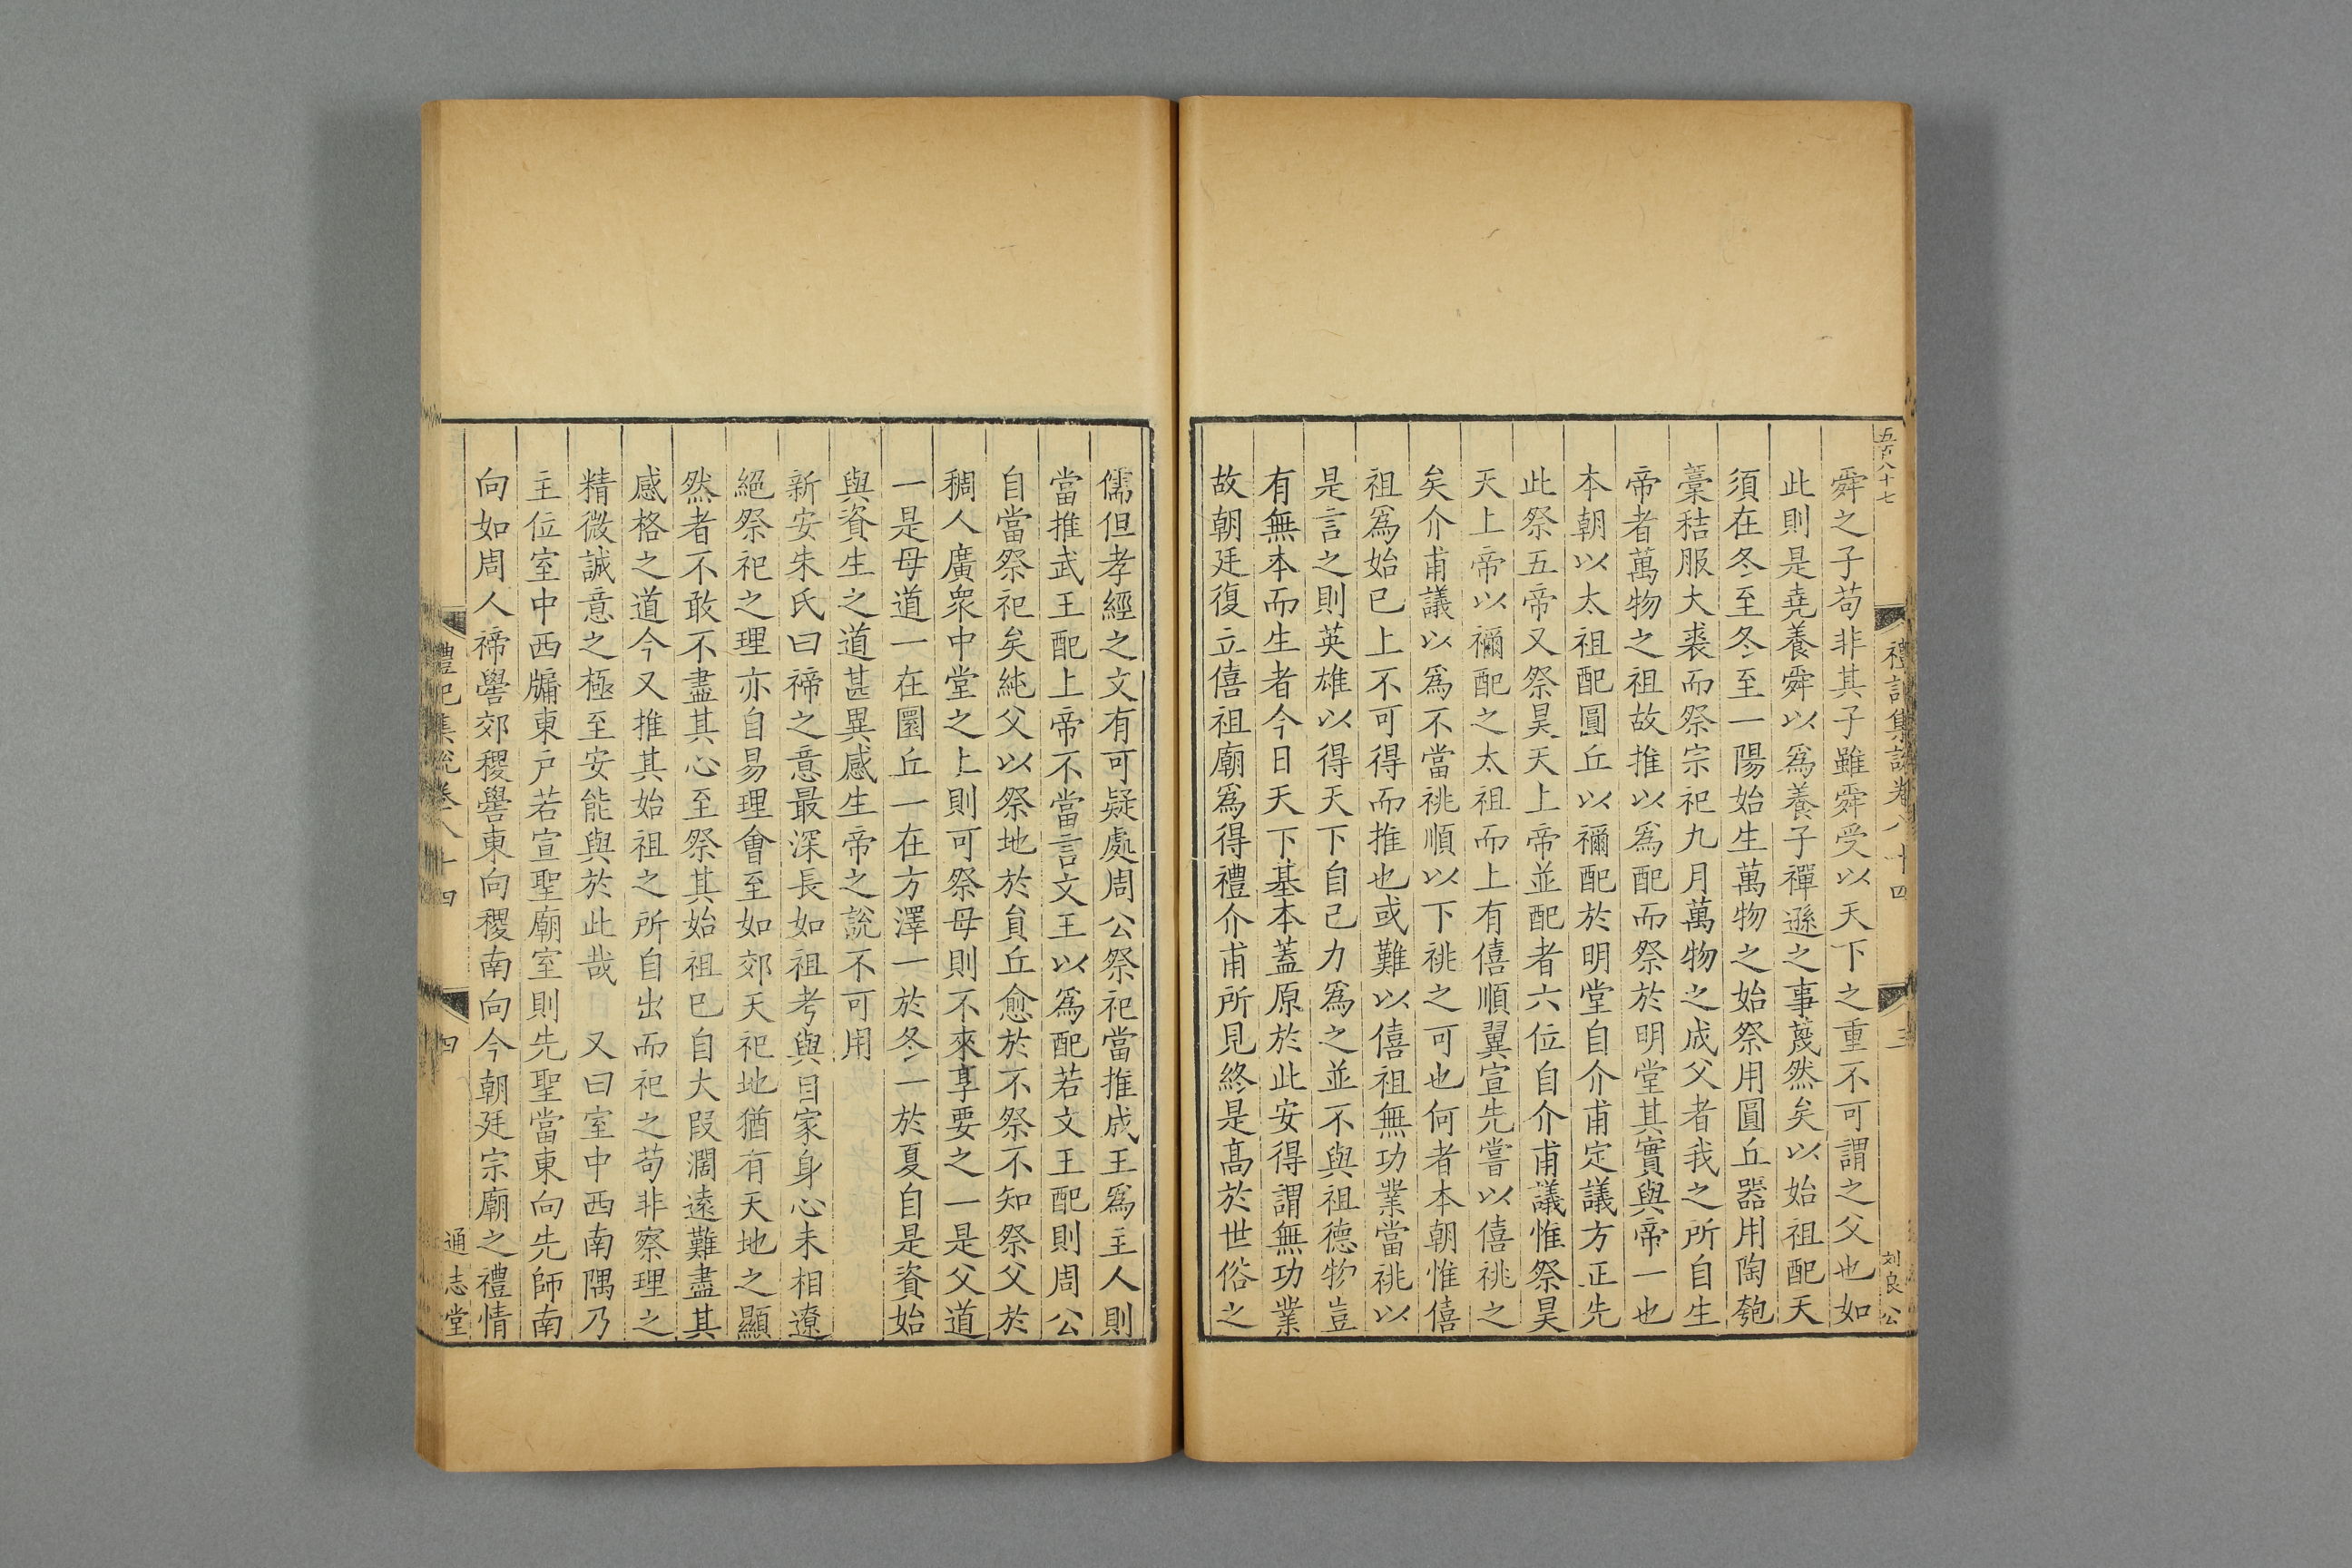 五百八十七
禮記集說卷八十四
三
刘良公
舜之子苟非其子雖舜受以天下之重不可謂之父也如
此則是堯養舜以爲養子禪遜之事蔑然矣以始祖配天
須在冬至冬至一陽始生萬物之始祭用圓丘器用陶匏
藁秸服大裘而祭宗祀九月萬物之成父者我之所自生
帝者萬物之祖故推以爲配而祭於明堂其實與帝一也
本朝以太祖配圓丘以禰配於明堂自介甫定議方正先
此祭五帝又祭昊天上帝並配者六位自介甫議惟祭昊
天上帝以禰配之太祖而上有僖順翼宣先嘗以僖祧之
矣介甫議以爲不當祧順以下祧之可也何者本朝惟僖
祖爲始已上不可得而推也或難以僖祖無功業當祧以
是言之則英雄以得天下自己力爲之並不與祖德物豈
有無本而生者今日天下基本蓋原於此安得謂無功業
故朝廷復立僖祖廟爲得禮介甫所見終是高於世俗之
儒但孝經之文有可疑處周公祭祀當推成王爲主人則
當推武王配上帝不當言文王以爲配若文王配則周公
自當祭祀矣純父以祭地於員丘愈於不祭不知祭父於
稠人廣衆中堂之上則可祭母則不來享要之一是父道
一是母道一在圜丘一在方澤一於冬一於夏自是資始
與資生之道甚異感生帝之說不可用
新安朱氏曰禘之意最深長如祖考與自家身心未相遼
絕祭祀之理亦自易理會至如郊天祀地猶有天地之顯
然者不敢不盡其心至祭其始祖已自大段濶遠難盡其
感格之道今又推其始祖之所自出而祀之苟非察理之
精微誠意之極至安能與於此哉　又曰室中西南隅乃
主位室中西牖東戶若宣聖廟室則先聖當東向先師南
向如周人禘嚳郊稷嚳東向稷南向今朝廷宗廟之禮情
禮記集說卷八十四
四
通志堂